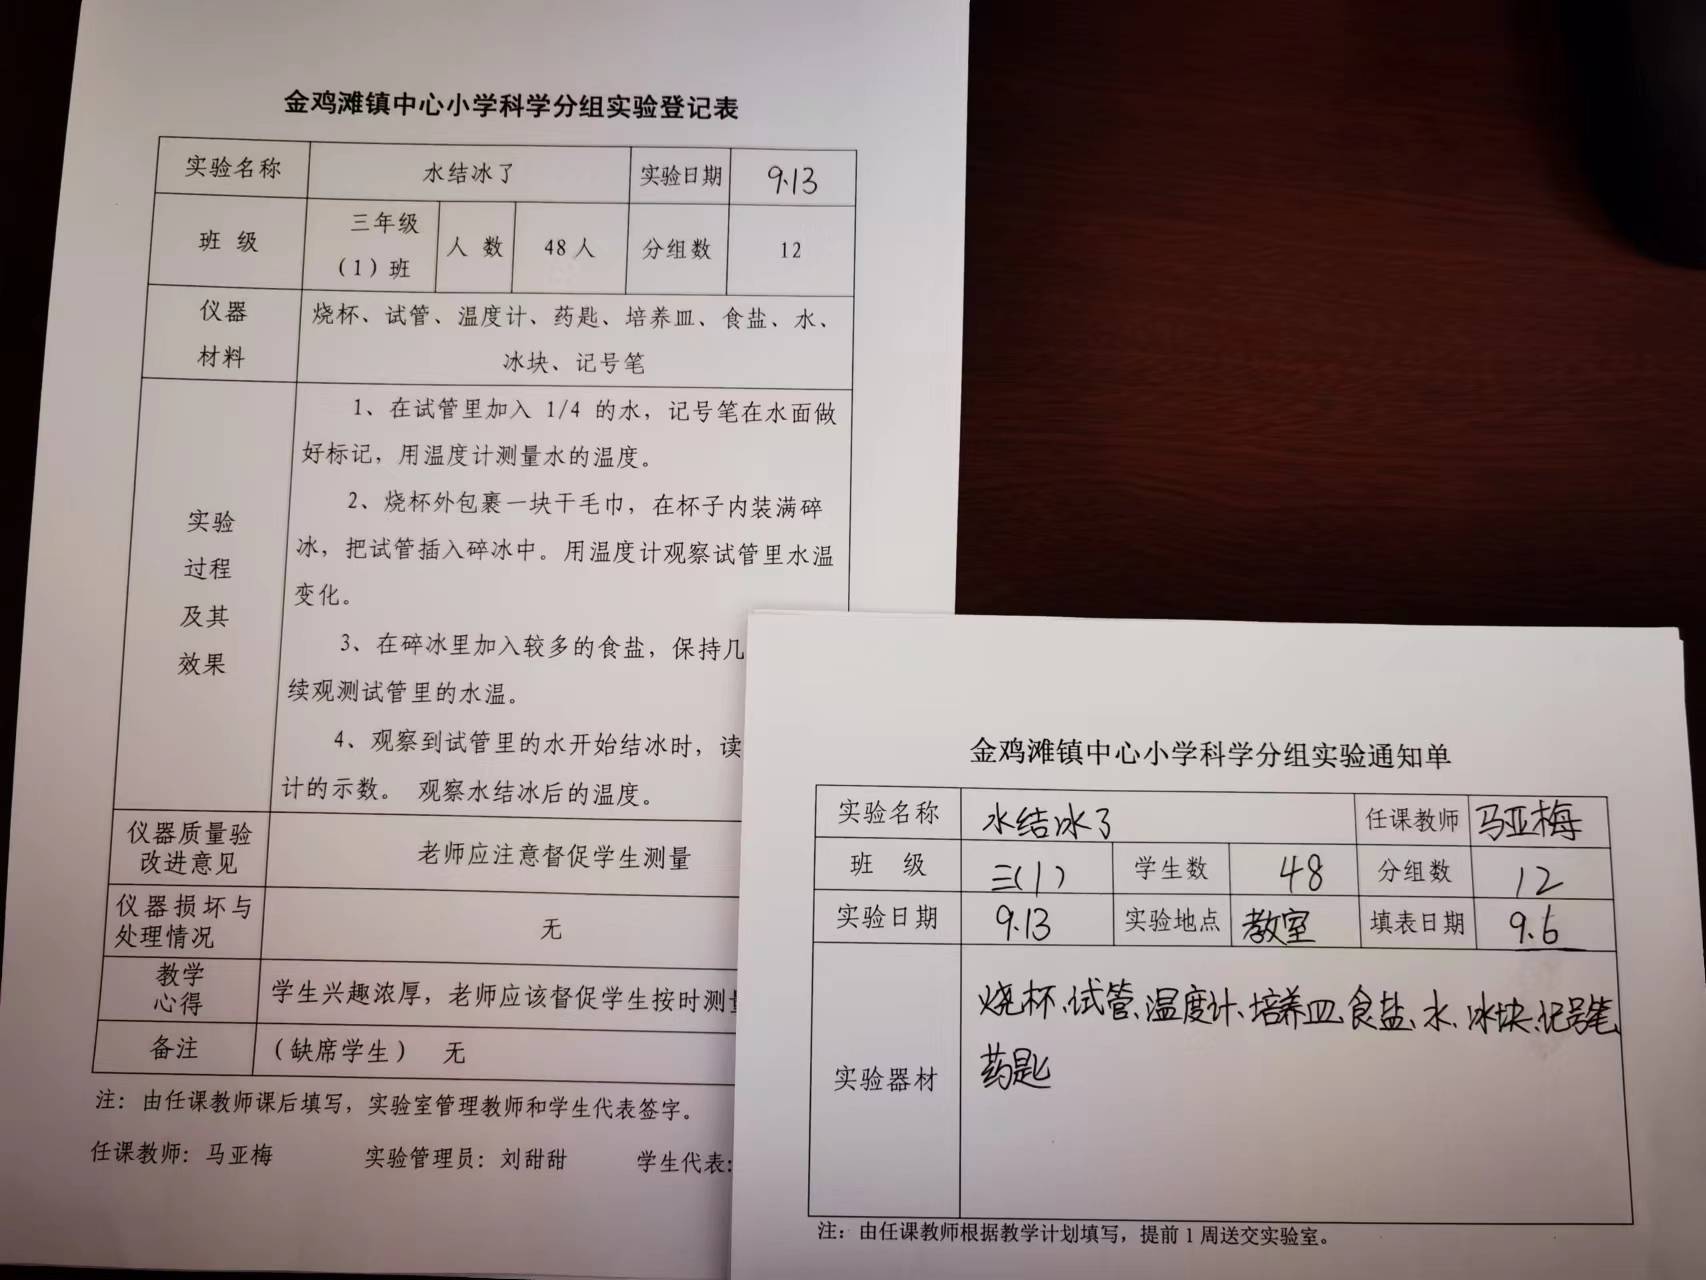 金鸡滩镇中心小学科学分组实验登记表
实验名称 水结冰了 实验日期 9.13
班 级 三年级（1）班 人 数 48人 分组数 12
仪器材料 烧杯、试管、温度计、药匙、培养皿、食盐、水、
冰块、记号笔
实验过程及其效果
1、在试管里加入 1/4 的水，记号笔在水面做
好标记，用温度计测量水的温度。
2、烧杯外包裹一块干毛巾，在杯子内装满碎
冰，把试管插入碎冰中。用温度计观察试管里水温
变化。
3、在碎冰里加入较多的食盐，保持几
续观测试管里的水温。
4、观察到试管里的水开始结冰时，读
计的示数。 观察水结冰后的温度。
仪器质量验改进意见 老师应注意督促学生测量
仪器损坏与处理情况 无
教学心得 学生兴趣浓厚，老师应该督促学生按时测量
备注 （缺席学生） 无
注：由任课教师课后填写，实验室管理教师和学生代表签字。
任课教师：马亚梅 实验管理员：刘甜甜 学生代表：
金鸡滩镇中心小学科学分组实验通知单
实验名称 水结冰了 任课教师 马亚梅
班 级 三（1） 学生数 48 分组数 12
实验日期 9.13 实验地点 教室 填表日期 9.6
实验器材 烧杯、试管、温度计、培养皿、食盐、水、冰块、记号笔、
药匙
注：由任课教师根据教学计划填写，提前1周送交实验室。